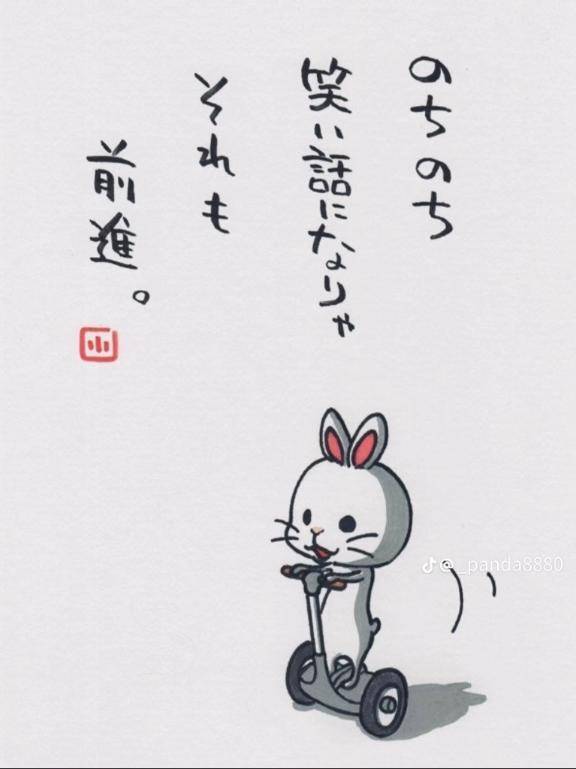 のちのち
笑い話になりゃ
それも
前進。
小
@_panda8880